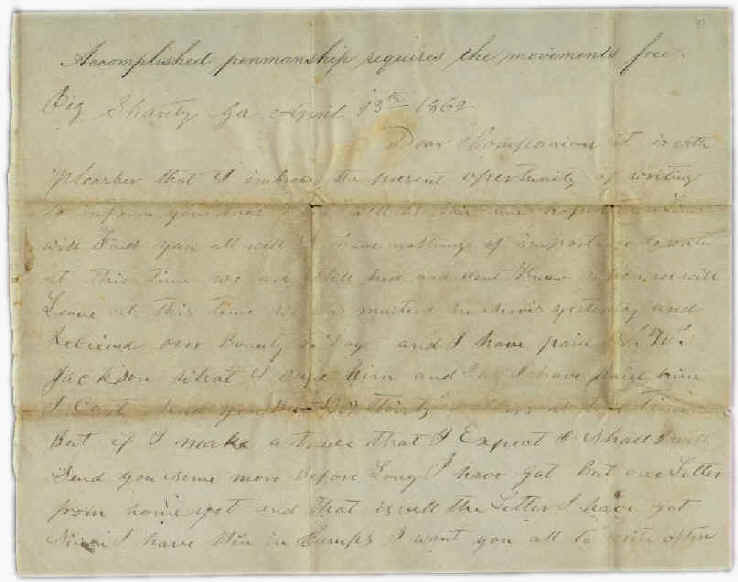 Accomplished penmanship requires the movements free.
Big Shanty Ga April 13th 1862
Dear Companion it is with
pleasher that I embrace the present opertunity of writing
to inform you that I
will find you all well I have nothing of importance to write
at this time we are still hear and dont know when we will
Leave at this time we musterd in servis yesterday and
Recieved our Bounty to Day and I have paid
Jackson what I owe him and I have paid him
I Cant Send you But thirty at this time
But if I make a trade that I Expect to I Shall
Send you some more Before Long I have got But one Letter
from home yet and that is all the Letter I have got
I have Bin in Camps I want you all to write often